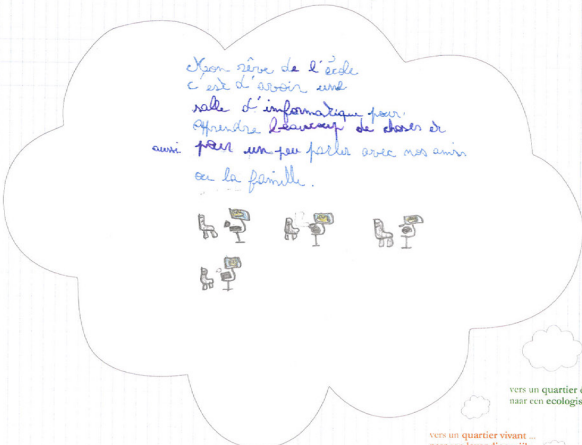 Mon rêve de l'école
c'est d'avoir une
salle d'imformatique pour
apprendre beaucoup de choses et
aussi pour un peu parler avec mes amis
ou la famille.
vers un quartier
naar een ecologis
vers un quartier vivant ...